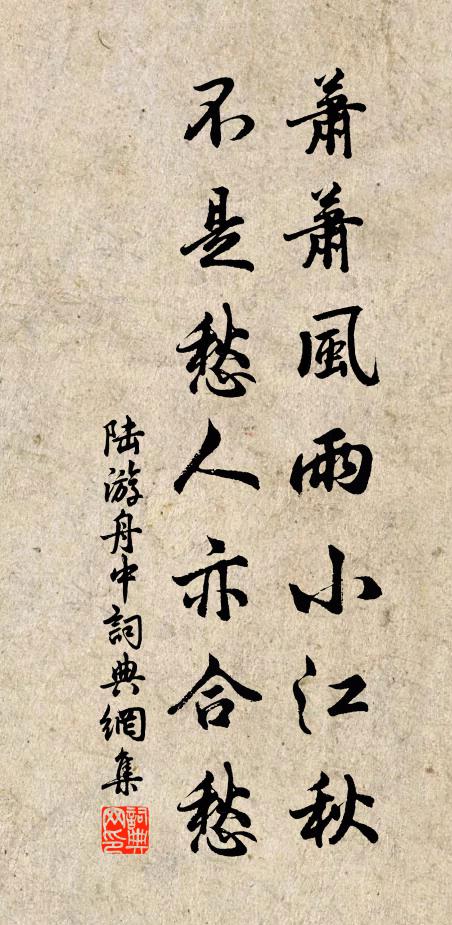 蕭蕭風雨小江秋
不是愁人亦合愁
陆游舟中詞典網集
詞典
网印